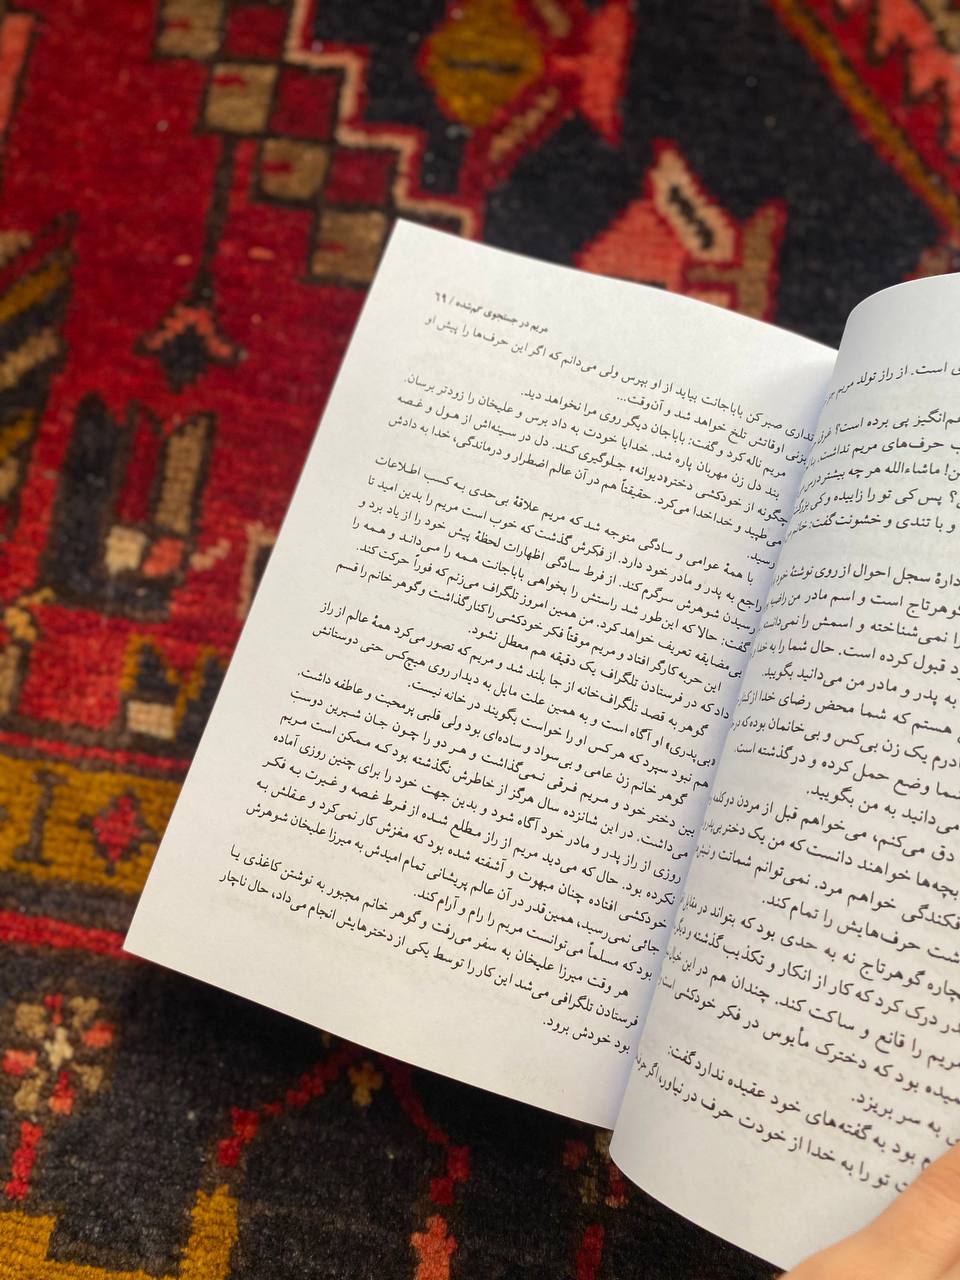 است. از راز تولد مریم جز
هم‌انگیز پی برده است؟ غرق
حرف‌های مریم نداشت. با
ن! ماشاءالله هر چه بیشتر درس
؟ پس کی تو را زاییده و کی بزرگ
و با تندی و خشونت گفت:
دارهٔ سجل احوال از روی نوشتهٔ خود
گوهرتاج است و اسم مادر من
را نمی‌شناخته و اسمش را نمی‌دانسته
د قبول کرده است. حال شما را به خدا
به پدر و مادر من می‌دانید بگویید.
هستم که شما محض رضای خدا از
ادرم یک زن بی‌کس و بی‌خانمان بوده که در
شما وضع حمل کرده و درگذشته است.
می‌دانید به من بگویید.
دق می‌کنم، می‌خواهم قبل از مردن دو کلمه
بچه‌ها خواهند دانست که من یک دختر بی‌پدر و
فکندگی خواهم مرد. نمی‌توانم شماتت و
شت حرف‌هایش را تمام کند.
چاره گوهرتاج نه به حدی بود که بتواند در مقابل
در درک کرد که کار از انکار و تکذیب گذشته و دیگر
مریم را قانع و ساکت کند. چندان هم در این
میده بود که دخترک مأیوس در فکر خودکشی است و
به سر بریزد.
بود به گفته‌های خود عقیده ندارد گفت:
تو را به خدا از خودت حرف در نیاور، اگر
مریم در جستجوی گم‌شده / ۶۹
قداری صبر کن باباجانت بیاید از او بپرس ولی می‌دانم که اگر این حرف‌ها را پیش او
بزنی اوقاتش تلخ خواهد شد و آن‌وقت...
مریم ناله کرد و گفت: باباجان دیگر روی مرا نخواهد دید.
بند دل زن مهربان پاره شد. خدایا خودت به داد برس و علیخان را زودتر برسان.
چگونه از خودکشی دختره «دیوانه» جلوگیری کند. دل در سینه‌اش از هول و غصه
می‌طپید و خداخدا می‌کرد. حقیقتاً هم در آن عالم اضطرار و درماندگی، خدا به دادش
رسید.
با همهٔ عوامی و سادگی متوجه شد که مریم علاقهٔ بی‌حدی به کسب اطلاعات
راجع به پدر و مادر خود دارد. از فکرش گذشت که خوب است مریم را بدین امید تا
رسیدن شوهرش سرگرم کند. از فرط سادگی اظهارات لحظهٔ پیش خود را از یاد برد و
گفت: حالا که این‌طور شد راستش را بخواهی باباجانت همه را می‌داند و همه را
بی‌مضایقه تعریف خواهد کرد. من همین امروز تلگراف می‌زنم که فوراً حرکت کند.
این حربه کارگر افتاد و مریم موقتاً فکر خودکشی را کنار گذاشت و گوهر خانم را قسم
داد که در فرستادن تلگراف یک دقیقه هم معطل نشود.
گوهر به قصد تلگراف‌خانه از جا بلند شد و مریم که تصور می‌کرد همهٔ عالم از راز
«بی‌پدری» او آگاه است و به همین علت مایل به دیدار روی هیچ‌کس حتی دوستانش
هم نبود سپرد که هر کس او را خواست بگویند در خانه نیست.
گوهر خانم زن عامی و بی‌سواد و ساده‌ای بود ولی قلبی پرمحبت و عاطفه داشت.
بین دختر خود و مریم فرقی نمی‌گذاشت و هر دو را چون جان شیرین دوست
می‌داشت. در این شانزده سال هرگز از خاطرش نگذشته بود که ممکن است مریم
روزی از راز پدر و مادر خود آگاه شود و بدین جهت خود را برای چنین روزی آماده
نکرده بود. حال که می‌دید مریم از راز مطلع شده از فرط غصه و غیرت به فکر
خودکشی افتاده چنان مبهوت و آشفته شده بود که مغزش کار نمی‌کرد و عقلش به
جائی نمی‌رسید، همین‌قدر در آن عالم پریشانی تمام امیدش به میرزا علیخان شوهرش
بود که مسلماً می‌توانست مریم را رام و آرام کند.
هر وقت میرزا علیخان به سفر می‌رفت و گوهر خانم مجبور به نوشتن کاغذی یا
فرستادن تلگرافی می‌شد این کار را توسط یکی از دخترهایش انجام می‌داد، حال ناچار
بود خودش برود.